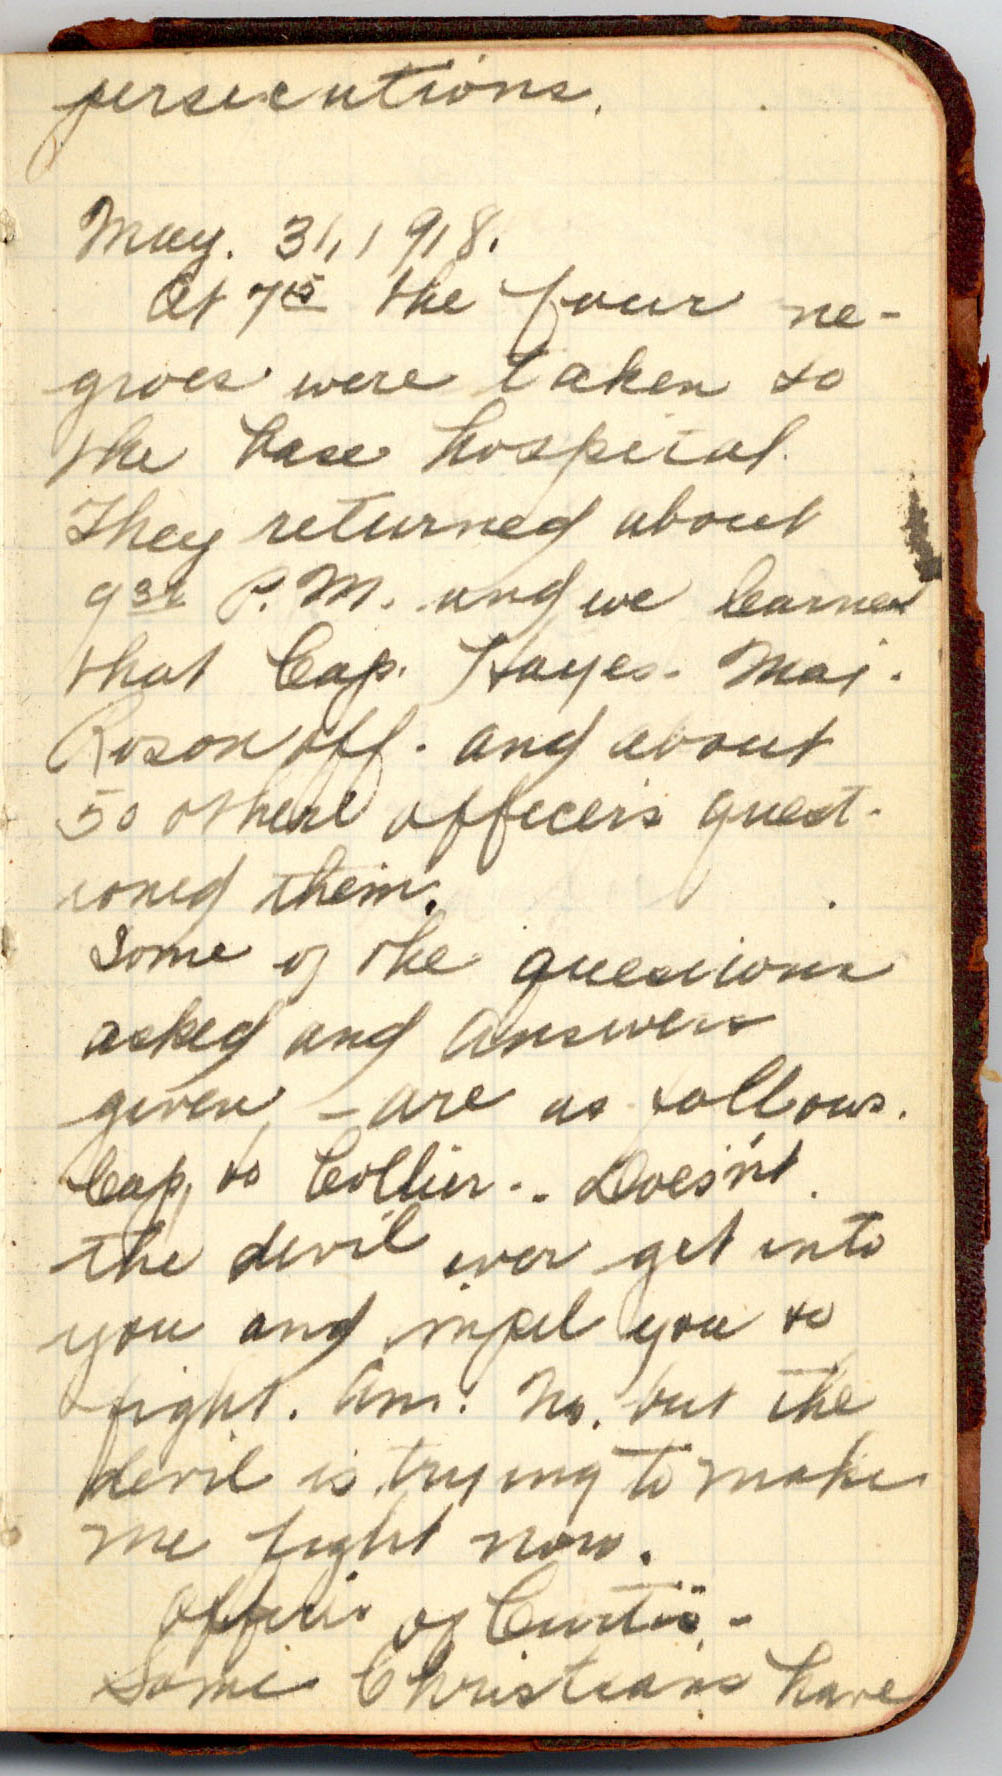 persecutions.
May. 31, 1918.
At 7 15 the four ne-
groes were taken to
the base hospital.
They returned about
9 P.M. and we learned
that Cap. Hayes. Maj.
Rosonoff. and about
50 others officers quest-
ioned them.
Some of the questions
asked and answers
given, - are as follows.
Cap, to Collier.. Doesn't
the devil ever get into
you and impel you to
fight. Ans. No. but the
devil is trying to make
me fight now.
Officer of Curtis. -
Some Christians have